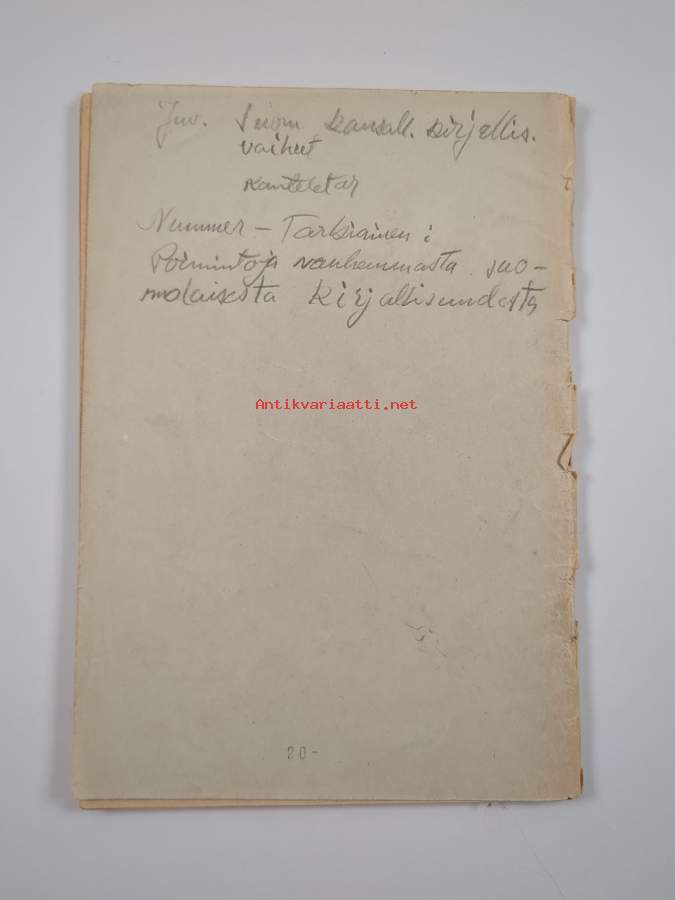 Juv. Suom. kansall. kirjellis.
vaiheet
Kanteletar
Nummer - Tarkiainen :
Poimintoja vanhemmasta suo-
malaisesta kirjallisuudesta
Antikvariaatti.net
20-